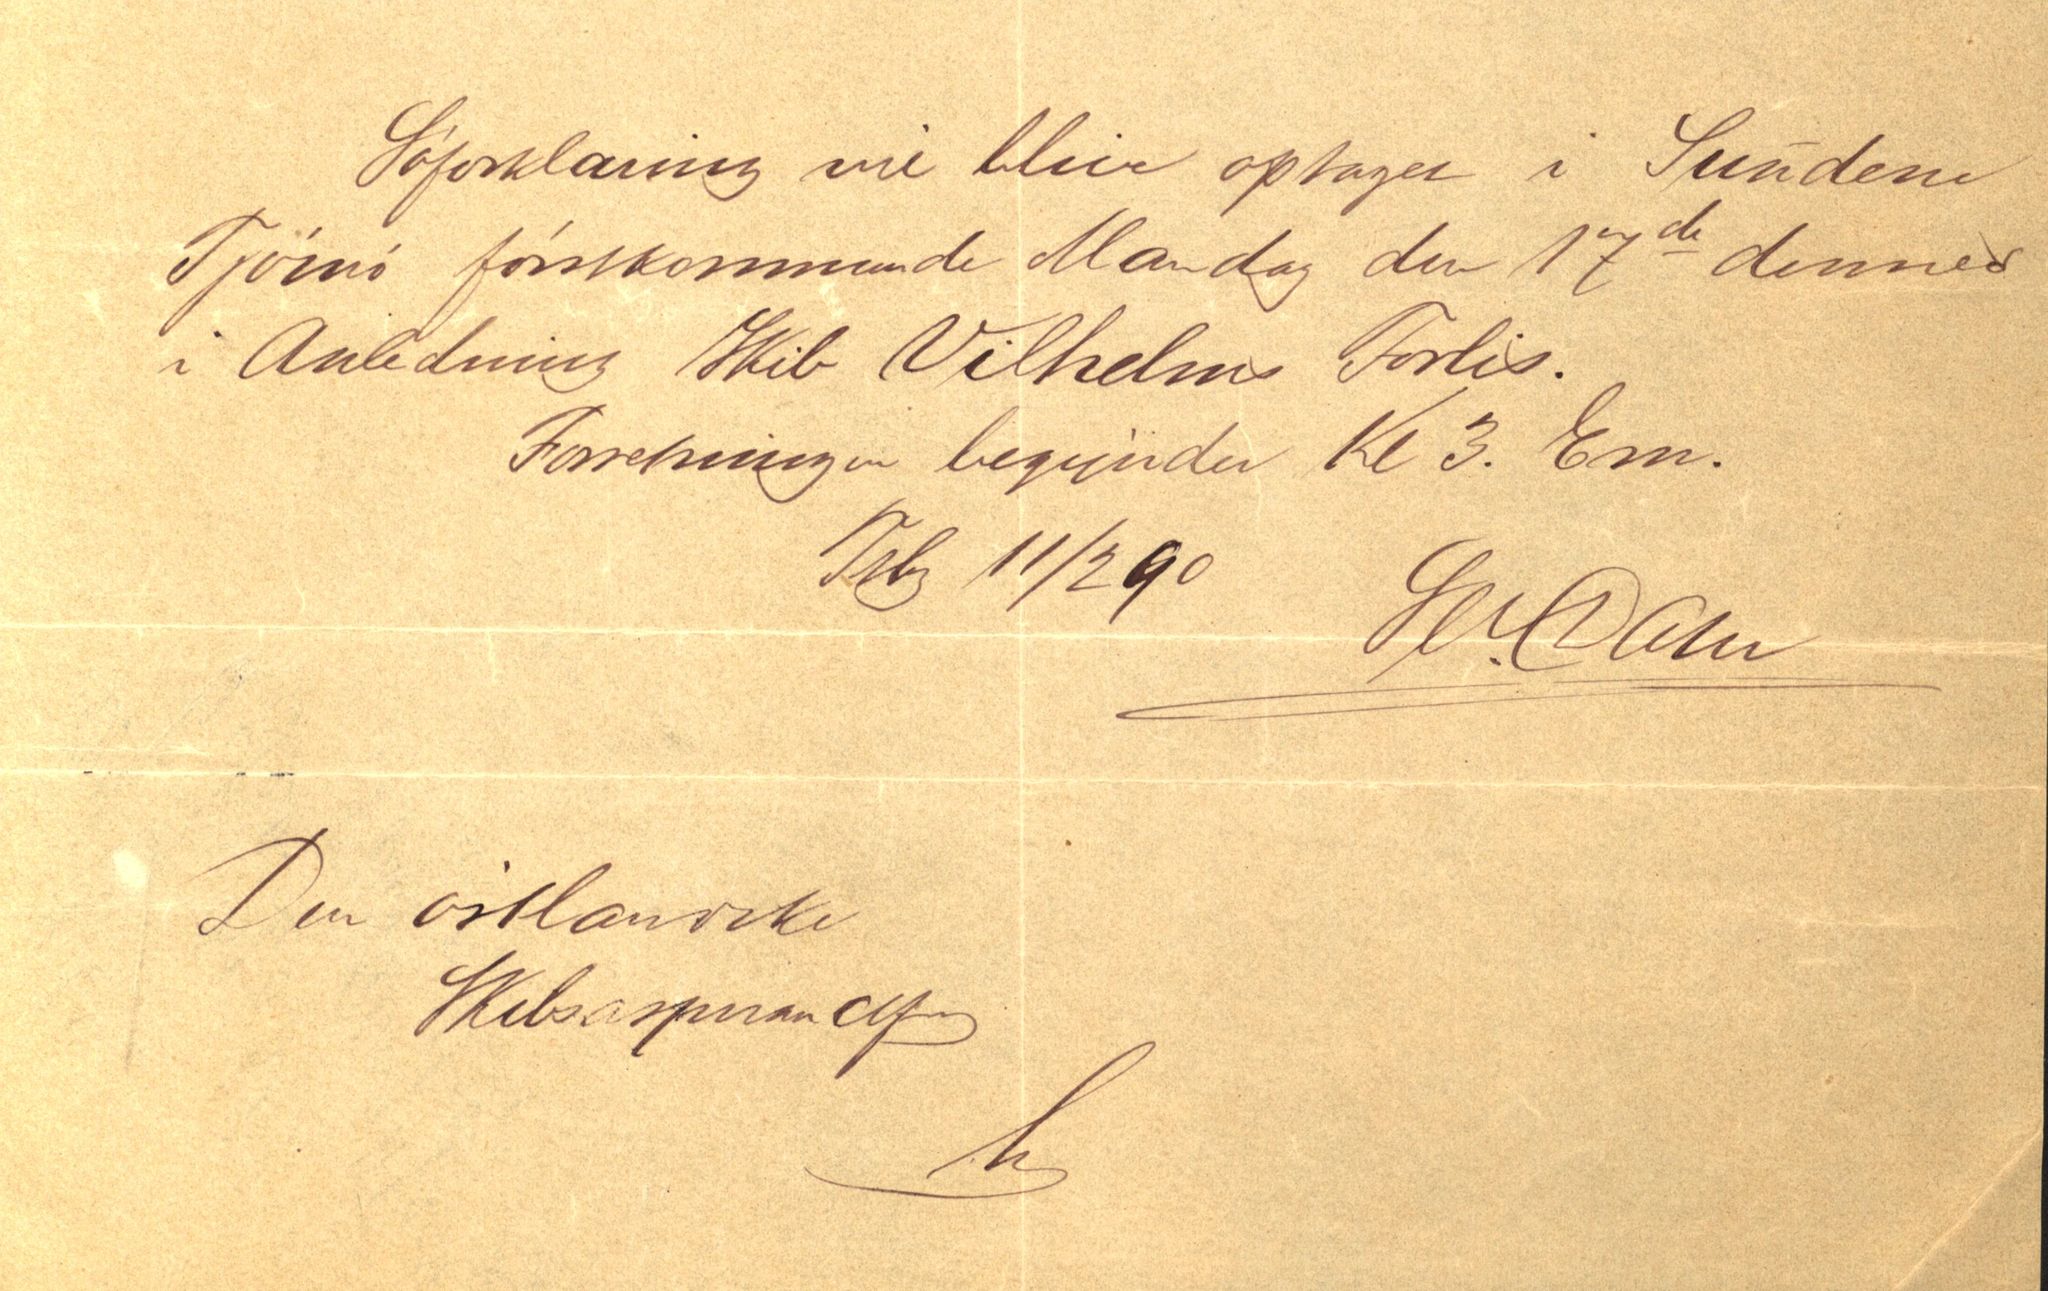 Söforklaring vil blive optaget i Sundene
Tjömö förstkommende Mandag den 17de dennes
i Anledning Skib Vilhelms Forlis.
Forretningen begynder Kl 3. Em.
Tsbg 11/2 90
Dahl
Den östlandske
Skibsassuranceforening